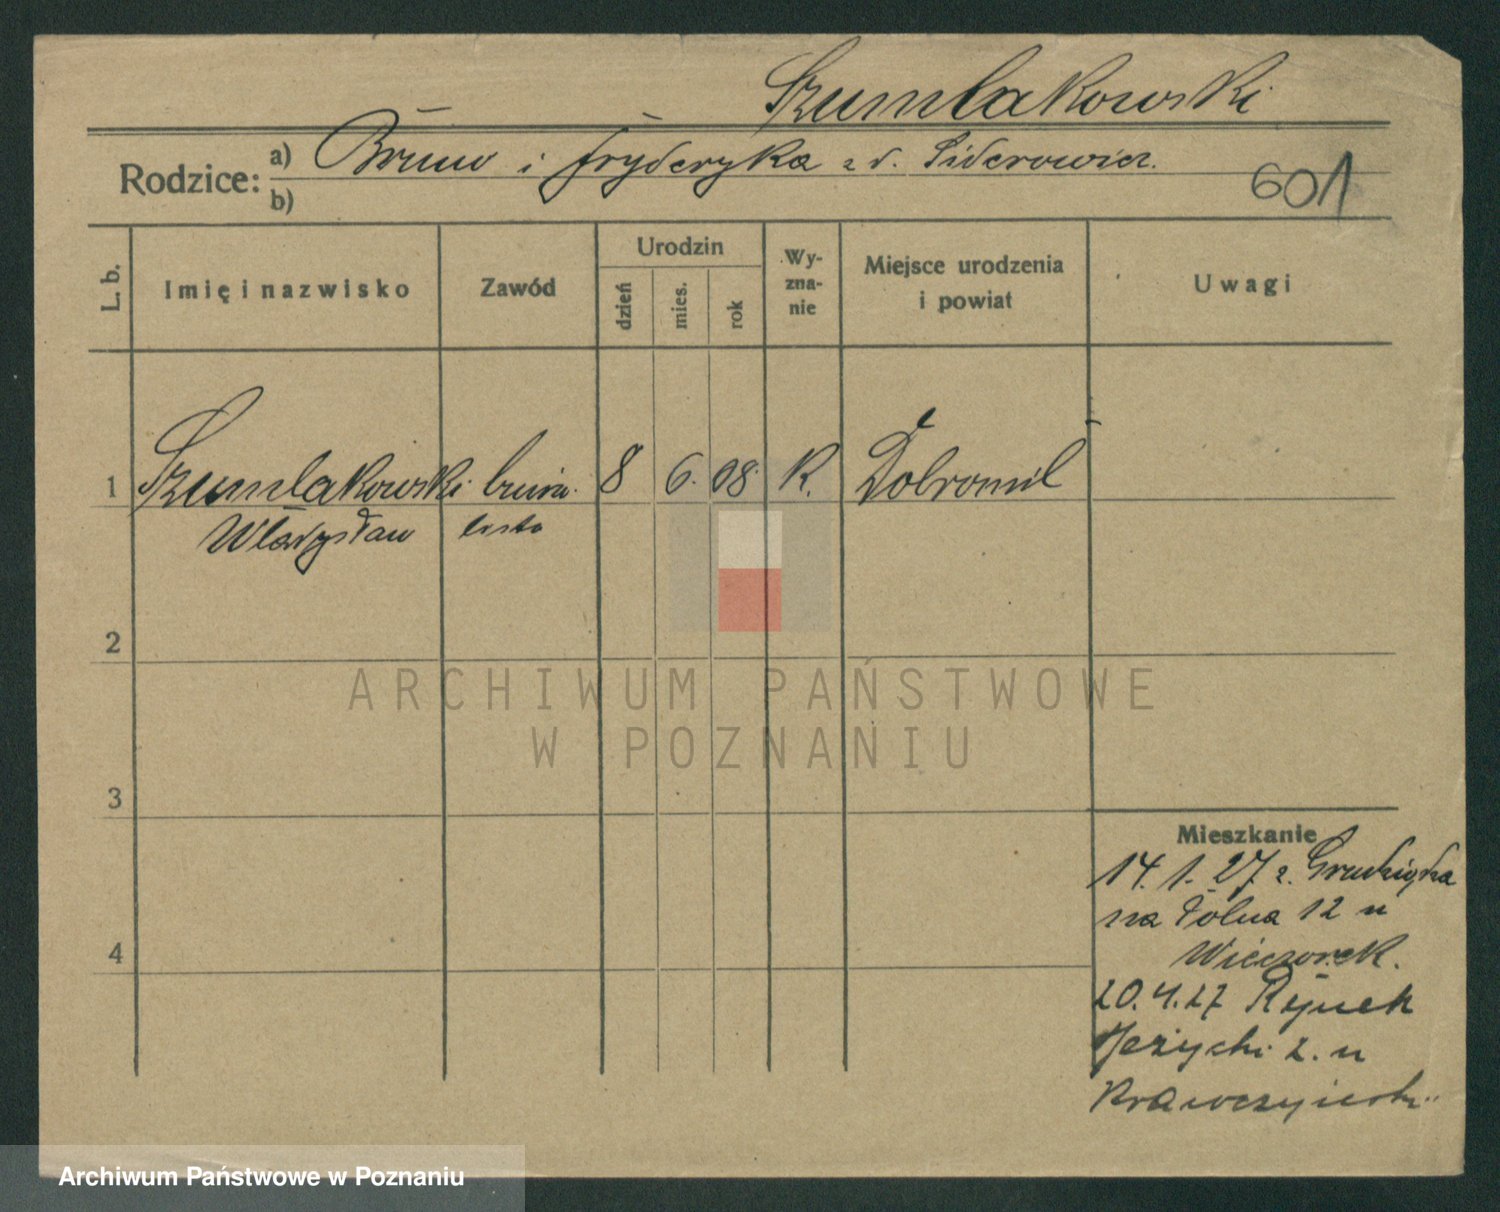 Szumlakowski
Rodzice: a) Bruno i Fryderyka z d. Siderowicz.
b)
601
L. b.
Imię i nazwisko
Zawód
Urodzin
dzień
mies.
rok
Wy-
zna-
nie
Miejsce urodzenia
i powiat
Uwagi
1 Szumlakowski 8 6. 08. K. Dobromil
Władysław
2
ARCHIWUM PAŃSTWOWE
W POZNANIU
3
Mieszkanie
14. 1. 27 z. Grudziądza
na Polna 12 u
Wieczorek.
4
20.4.27 Rynek
Jeżycki 2. u
Archiwum Państwowe w Poznaniu